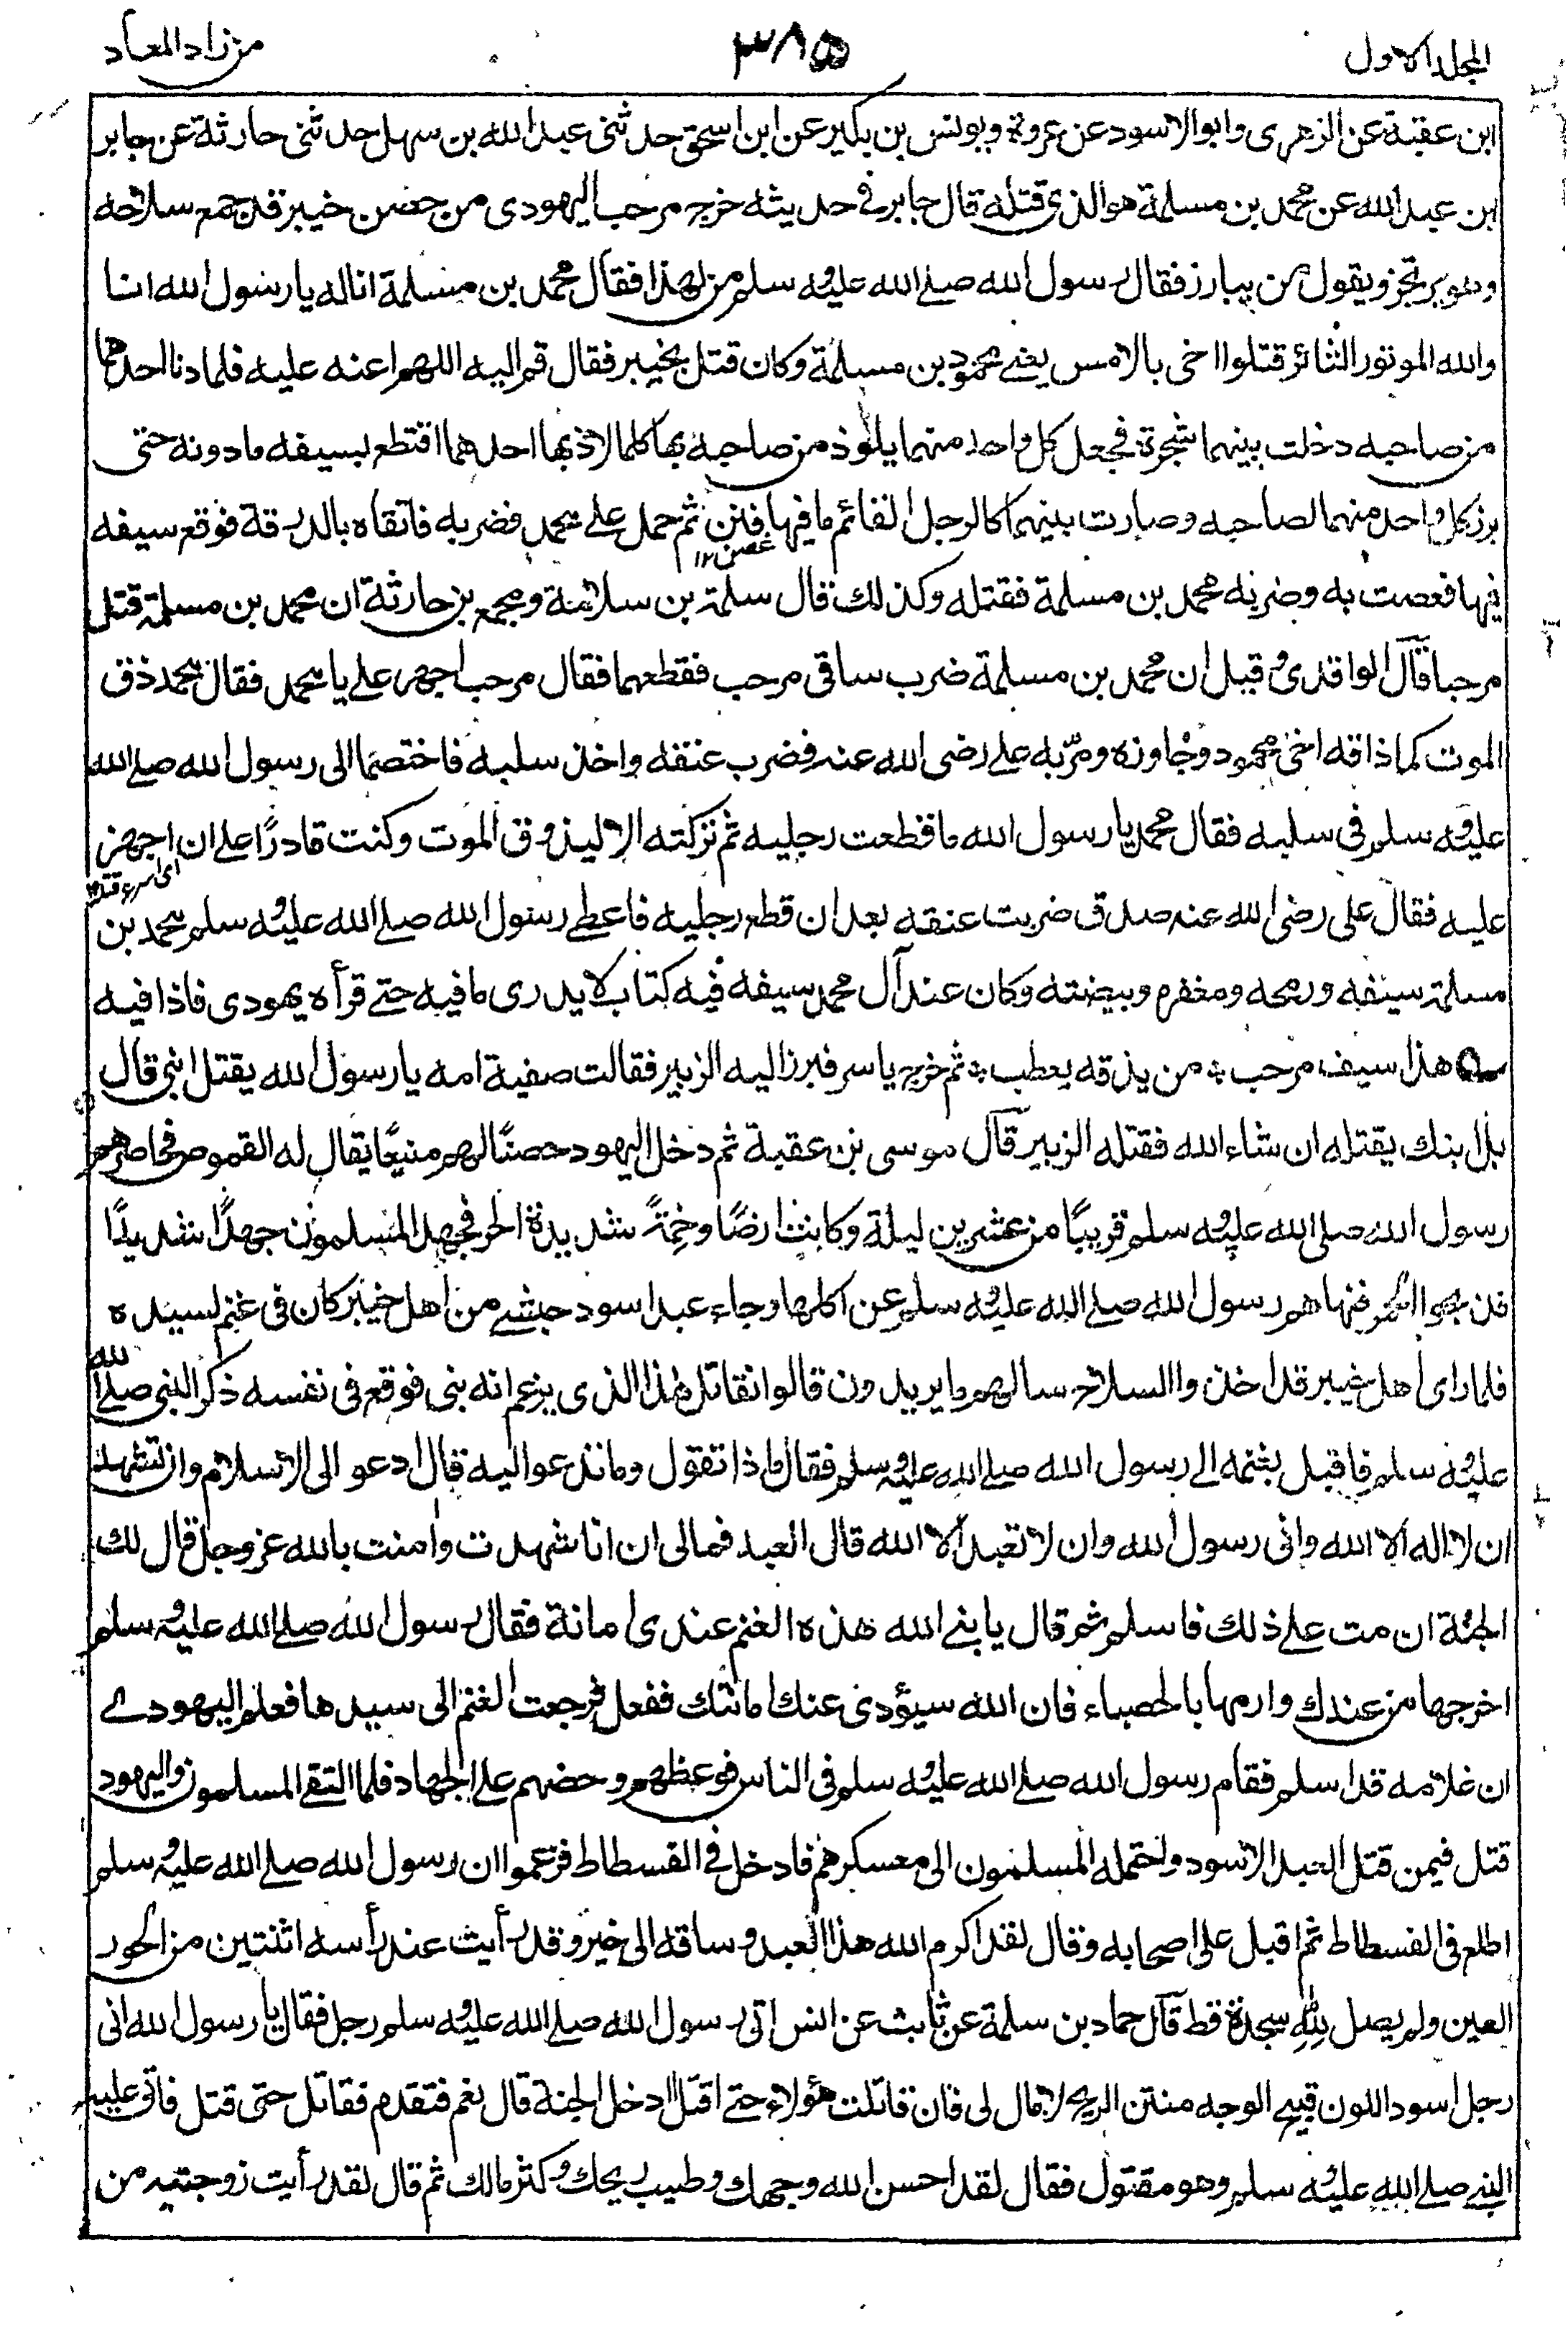 المجلد الاول
٣٨٥
من زاد المعاد
ابن عقبة عن الزهرى وابو الاسود عن عروة ويونس بن بكير عن ابن اسحق حدثنى عبد الله بن سهل حدثنى حارثة عن جابر
ابن عبد الله عن محمد بن مسلمة هو الذى قتله قال جابر فى حديثه خرج مرحب اليهودى من حصن خيبر قد جمع سلاحه
وهو يرتجز ويقول من يبارز فقال رسول الله صلے الله عليه وسلم من لهذا فقال محمد بن مسلمة اناله يا رسول الله انا
والله الموتور الثائر قتلوا اخى بالامس يعنے محمود بن مسلمة وكان قتل بخيبر فقال قم اليه اللهم اعنه عليه فلما دنا احدهما
من صاحبه دخلت بينهما شجرة فجعل كل واحد منهما يلوذ من صاحبه بها كلما لاذ بها احدهما اقتطع بسيفه ما دونه حتى
برز كل واحد منهما لصاحبه وصارت بينهما كالرجل القائم ما فيها فنن ثم حمل علے محمد فضربه فاتقاه بالدرقة فوقع سيفه
غصن ١٢
فيها فعضت به وضربه محمد بن مسلمة فقتله وكذلك قال سلمة بن سلامة ومجمع بن حارثة ان محمد بن مسلمة قتل
مرحبا قال الواقدى وقيل ان محمد بن مسلمة ضرب ساقى مرحب فقطعهما فقال مرحب اجهز علے يا محمد فقال محمد ذق
الموت كما ذاقه اخى محمود وجاوزه ومرّ به علے رضى الله عنه فضرب عنقه واخذ سلبه فاختصما الى رسول الله صلے الله
عليه وسلم فى سلبه فقال محمد يا رسول الله ما قطعت رجليه ثم تركته الا ليذوق الموت وكنت قادرًا علے ان اجهز
اى اسرع قتله
عليه فقال على رضى الله عنه صدق ضربت عنقه بعد ان قطع رجليه فاعطے رسول الله صلے الله عليه وسلم محمد بن
مسلمة سيفه ورمحه ومغفره وبيضته وكان عند آل محمد سيفه فيه كتاب لا يدرى ما فيه حتے قرأه يهودى فاذا فيه
هذا سيف مرحب ؞ من يذقه يعطب ؞ ثم خرج ياسر فبرز اليه الزبير فقالت صفية امه يا رسول الله يقتل ابنى قال
بل ابنك يقتله ان شاء الله فقتله الزبير قال موسى بن عقبة ثم دخل اليهود حصنًا لهم منيعًا يقال له القموص فحاصرهم
رسول الله صلى الله عليه وسلم قريبًا من عشرين ليلة وكانت ارضًا وخمةً شديدة الحر فجهد المسلمون جهدًا شديدًا
فذبحوا الحمر فنهاهم رسول الله صلے الله عليه وسلم عن اكلها وجاء عبد اسود حبشے من اهل خيبر كان فى غنم لسيده
فلما راى اهل خيبر قد اخذوا السلاح سالهم ما يريدون قالوا نقاتل هذا الذى يزعم انه نبى فوقع فى نفسه ذكر النبى صلے الله
عليه وسلم فاقبل بغنمه الے رسول الله صلے الله عليه وسلم فقال ماذا تقول وما تدعو اليه قال ادعو الى الاسلام وان تشهد
ان لا اله الا الله وانى رسول الله وان لا تعبد الا الله قال العبد فمالى ان انا شهدت وامنت بالله عز وجل قال لك
الجنة ان مت علے ذلك فاسلم ثم قال يا نبے الله هذه الغنم عندى امانة فقال رسول الله صلے الله عليه وسلم
اخرجها من عندك وارمها بالحصباء فان الله سيؤدى عنك امانتك ففعل فرجعت الغنم الى سيدها فعلم اليهودے
ان غلامه قد اسلم فقام رسول الله صلے الله عليه وسلم فى الناس فوعظهم وحضهم علے الجهاد فلما التقے المسلمون واليهود
قتل فيمن قتل العبد الاسود واحتمله المسلمون الى معسكرهم فادخل فى الفسطاط فزعموا ان رسول الله صلے الله عليه وسلم
اطلع فى الفسطاط ثم اقبل على اصحابه وقال لقد اكرم الله هذا العبد وساقه الى خير وقد رأيت عند رأسه اثنتين من الحور
العين ولم يصل لله سجدة قط قال حماد بن سلمة عن ثابت عن انس اتى رسول الله صلے الله عليه وسلم رجل فقال يا رسول الله انى
رجل اسود اللون قبيح الوجه منتن الريح لا مال لى فان قاتلت هؤلاء حتے اقتل ادخل الجنة قال نعم فتقدم فقاتل حتى قتل فاتى عليه
النبے صلے الله عليه وسلم وهو مقتول فقال لقد احسن الله وجهك وطيب ريحك وكثر مالك ثم قال لقد رأيت زوجتيه من